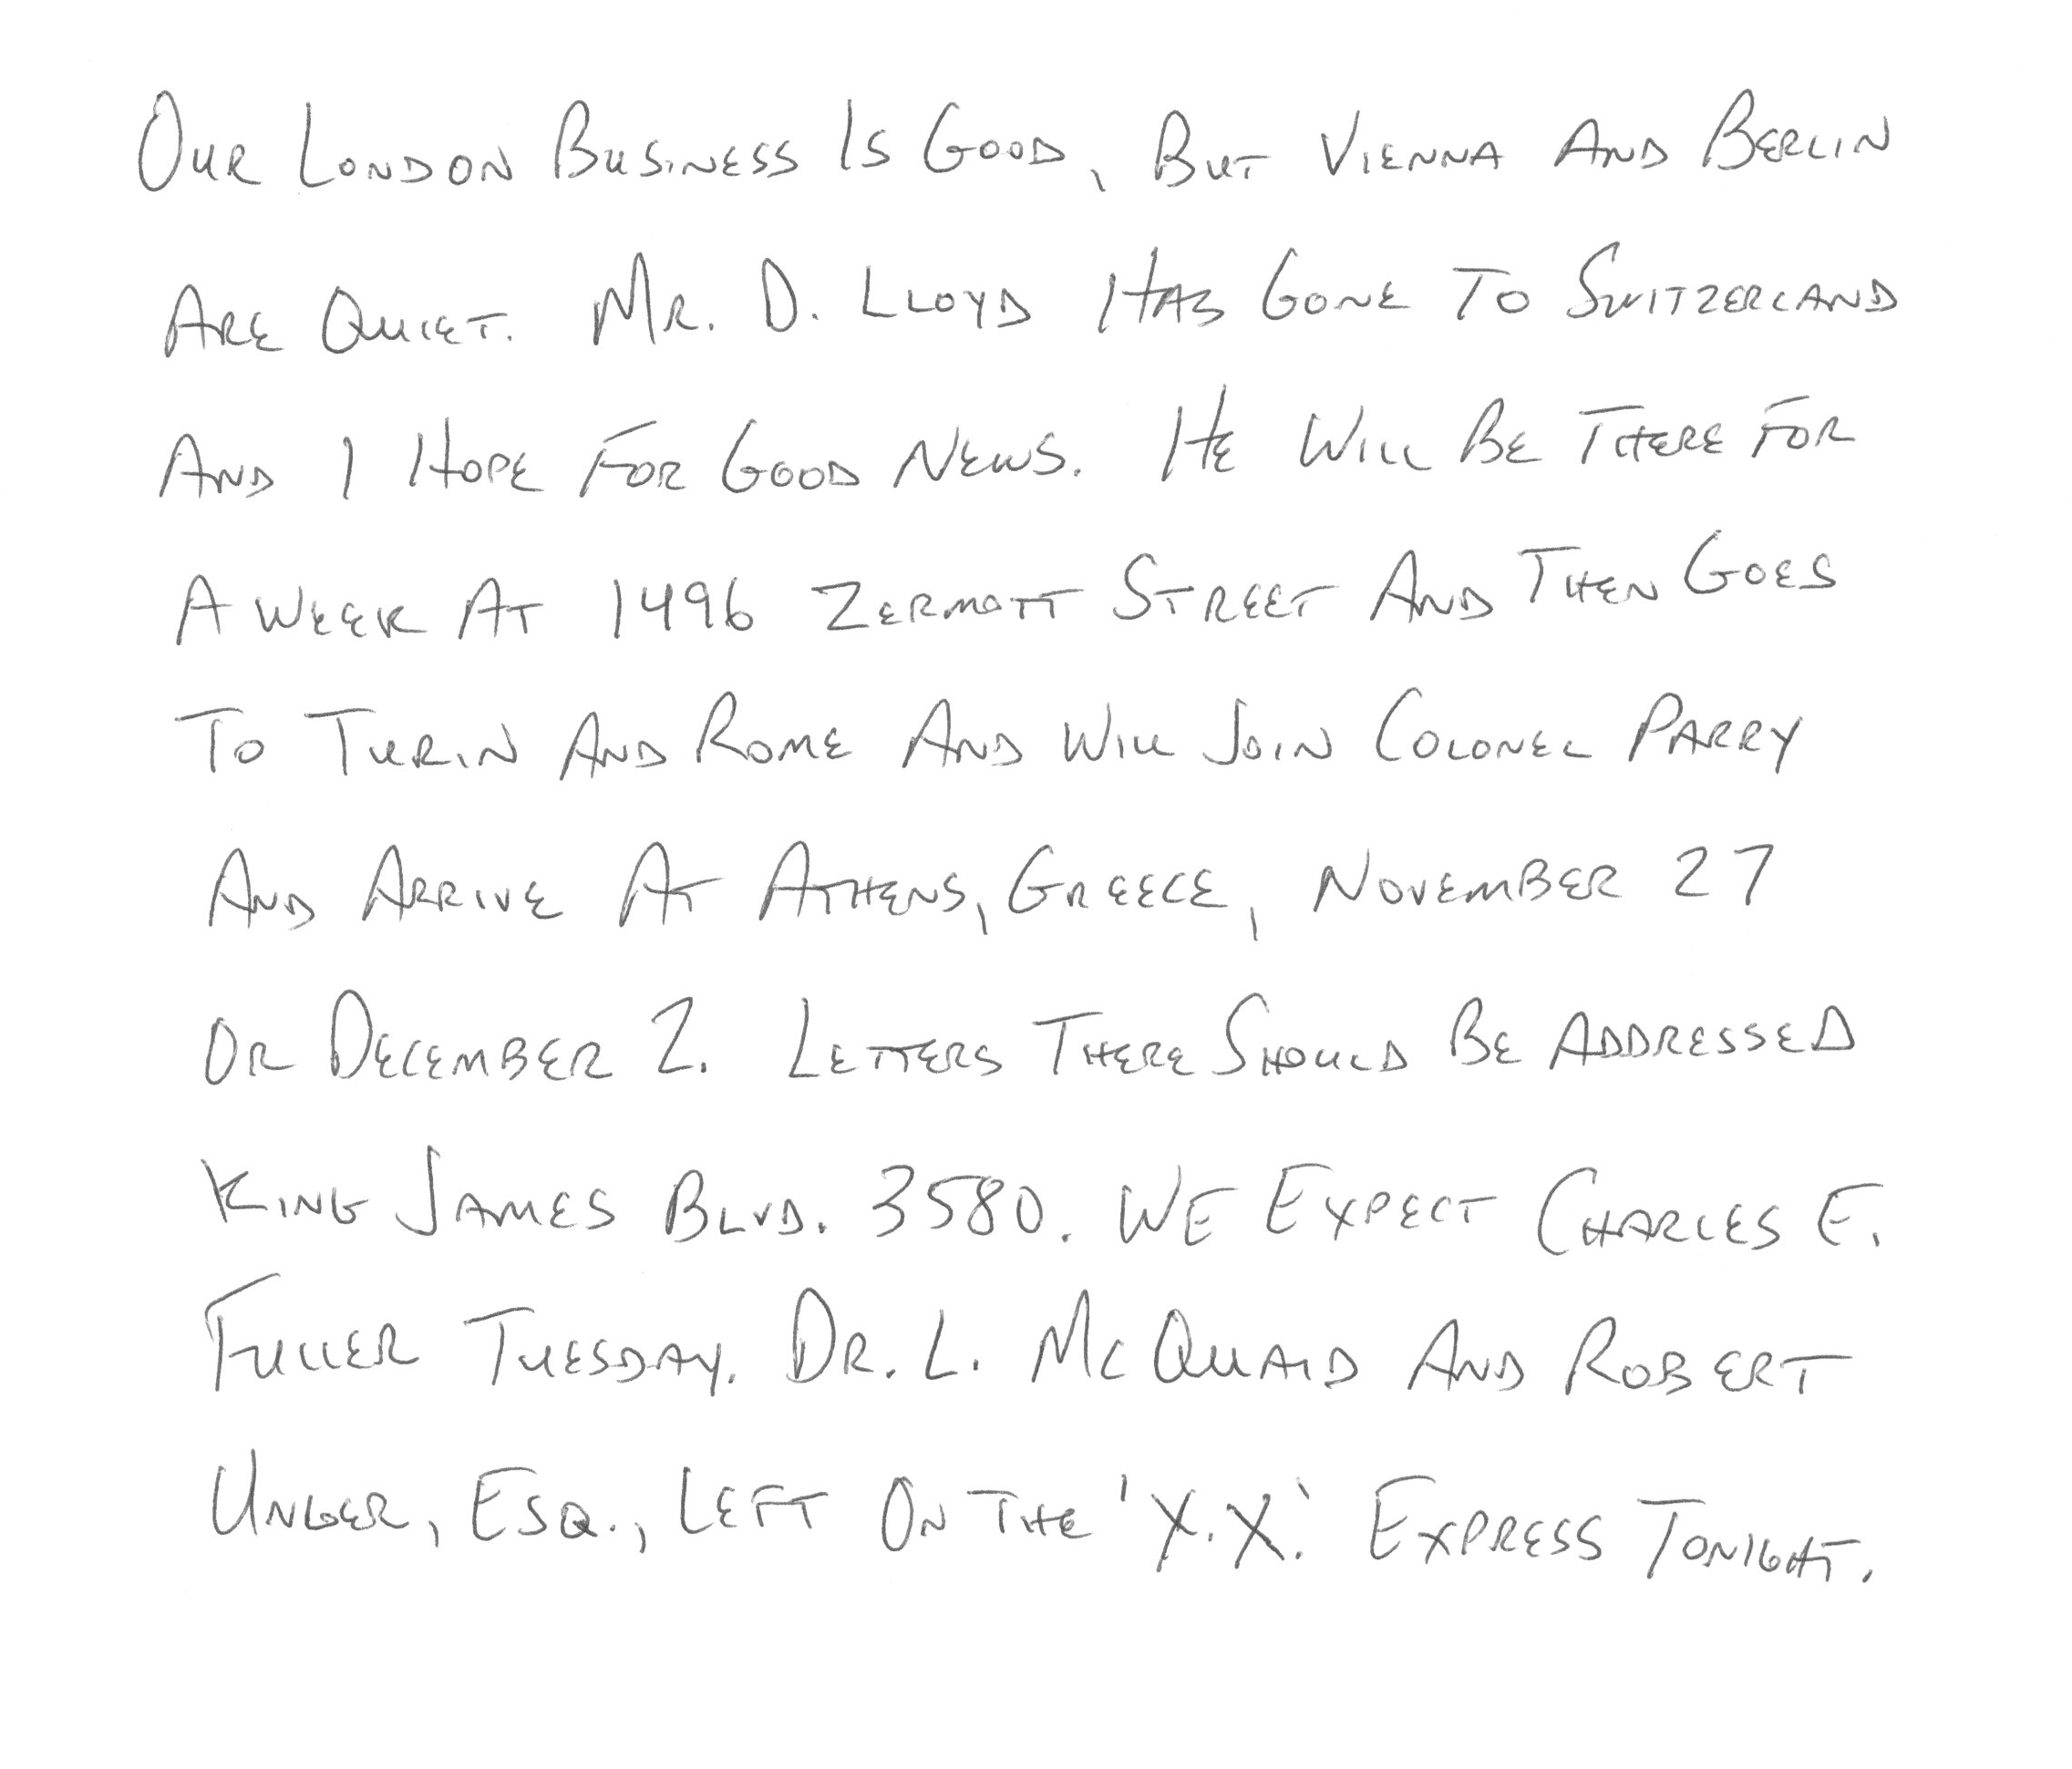 Our London Business Is Good, But Vienna And Berlin
Are Quiet. Mr. D. Lloyd Has Gone To Switzerland
And I Hope For Good News. He Will Be There For
A Week At 1496 Zermott Street And Then Goes
To Turin And Rome And Will Join Colonel Parry
And Arrive At Athens, Greece, November 27
or December 2. Letters There Should Be Addressed
King James Blvd. 3580. We Expect Charles E.
Fuller Tuesday. Dr. L. McQuaid And Robert
Unger, Esq., Left On The 'X.X.' Express Tonight.